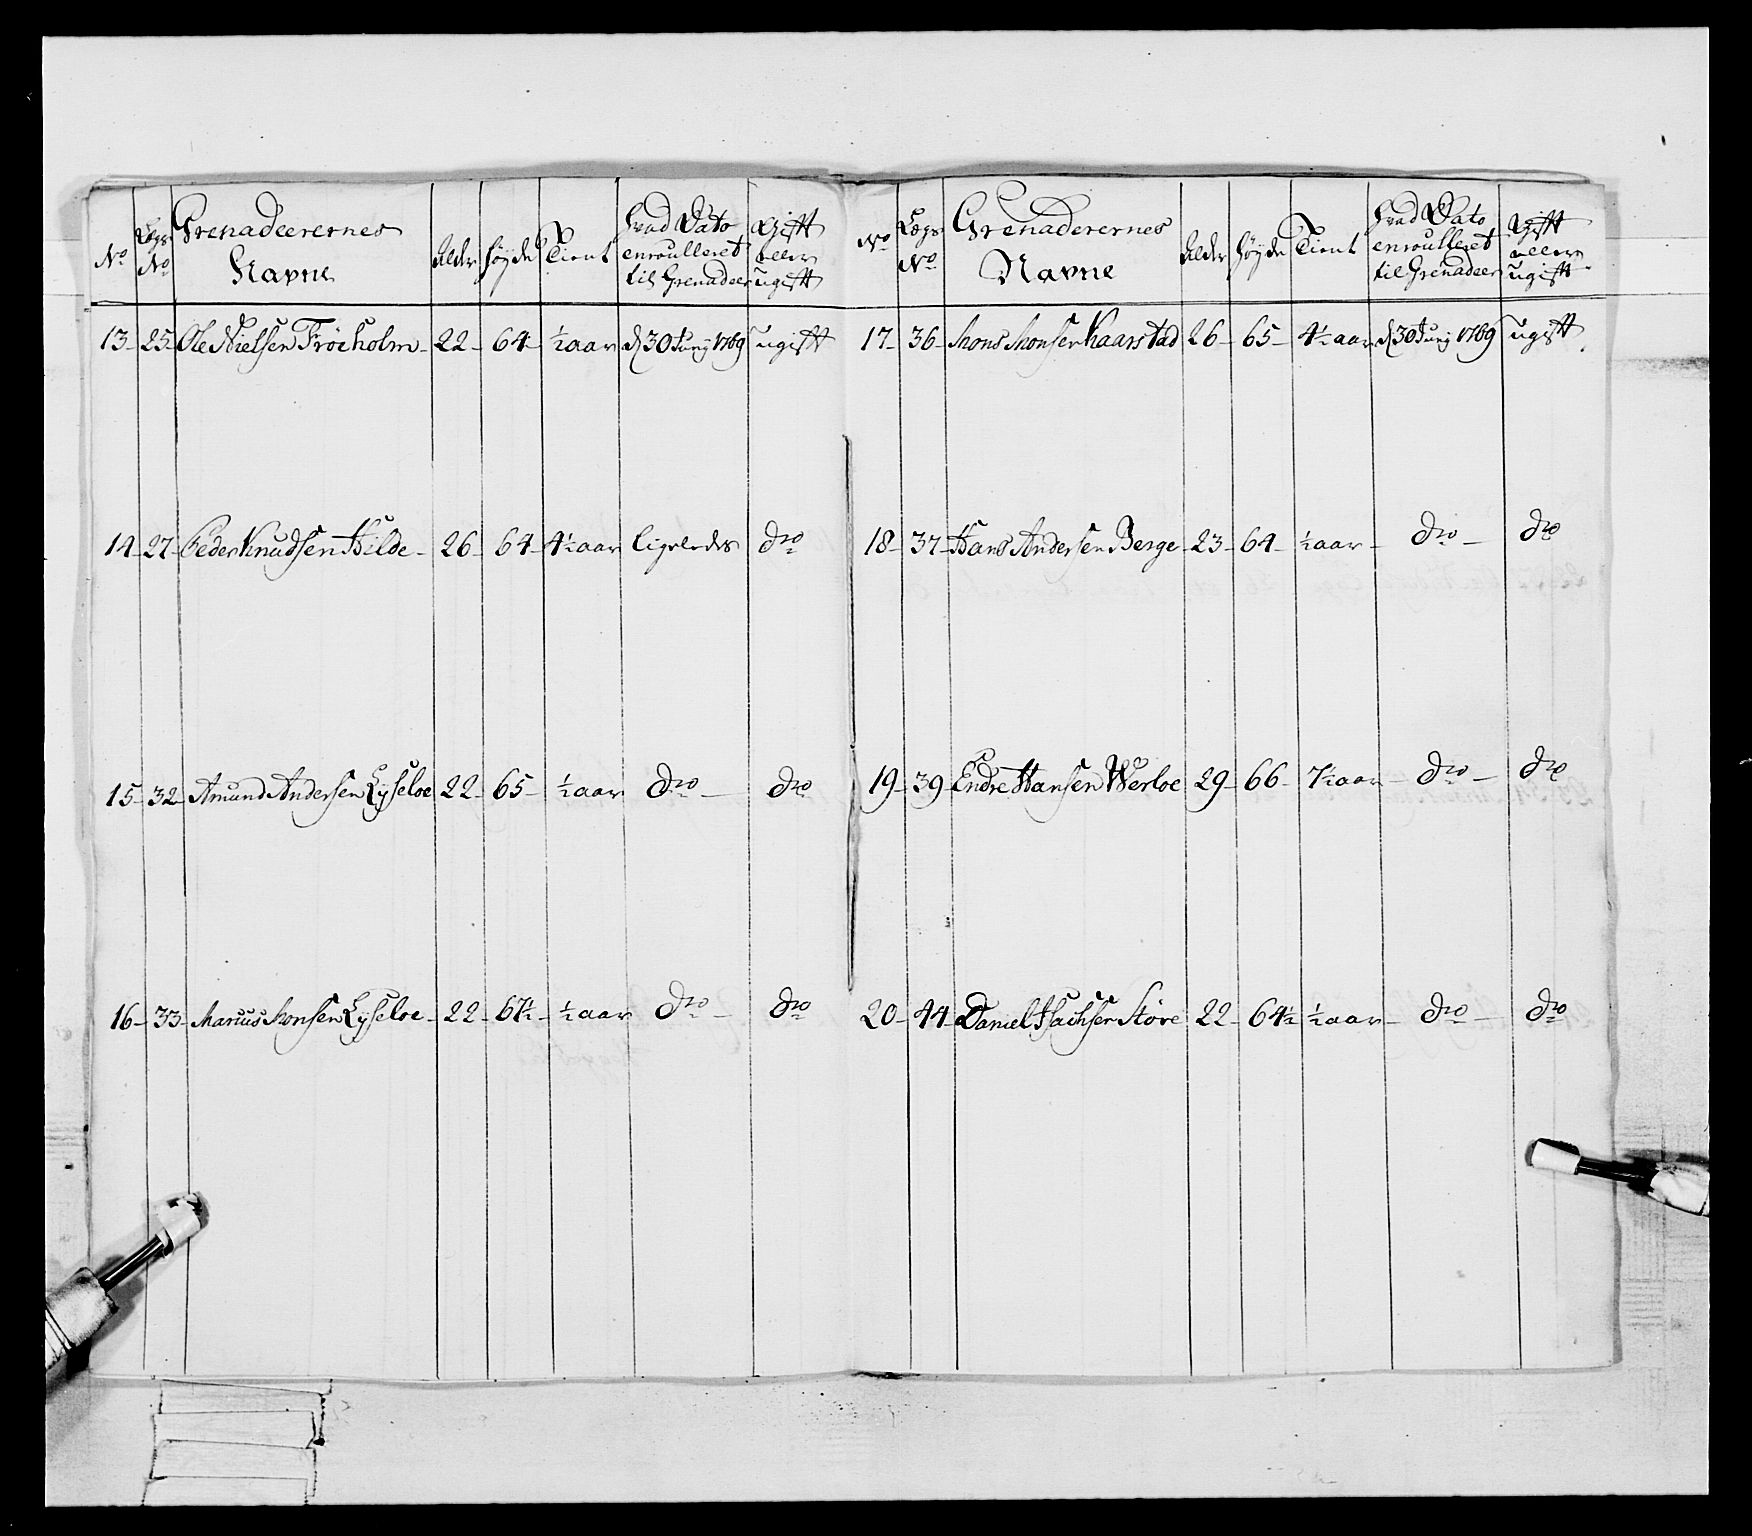 No Lægs No Grenadeerernes Navne Alder Høyde Tient hvad Dato enroulleret til Grenadeer Gift eller ugift
13 25 Ole Nielsen Frøeholm 22 64 ½ aar d 30 Junij 1769 ugift
14 27 Peder Knudsen Hilde 26 64 4½ aar ligeledes dto
15 32 Amund Andersen Lyseloe 22 65 ½ aar dto dto
16 33 Marius Monsen Lÿseloe 22 67½ ½ aar dto dto
No Lægs No Grenaderernes Navne Alder Høyde Tient hvad Dato enroulleret til Grenadeer Gift eller ugift
17 36 Mons Monsen Kaarstad 26 65 4½ aar d 30 Junij 1769 ugift
18 37 Hans Andersen Berge 23 64 ½ aar dto dto
19 39 Endre Hansen Werloe 29 66 7½ aar dto dto
20 44 Daniel Støre 22 64½ ½ aar dto dto